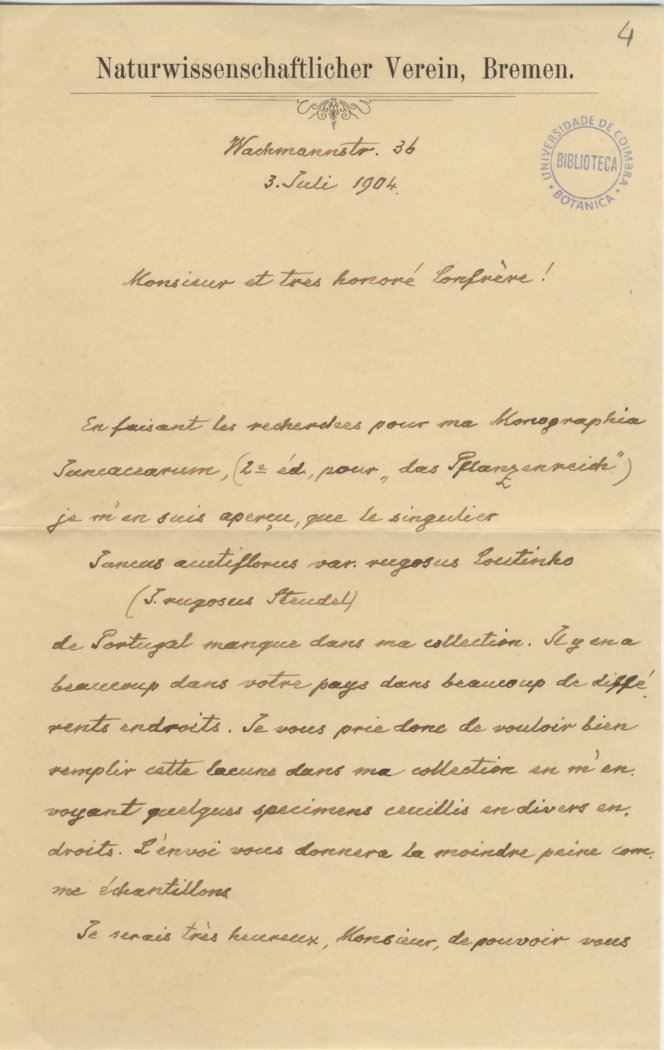 4
Naturwissenschaftlicher Verein, Bremen.
Wachmannstr. 36
3. Juli 1904.
UNIVERSIDADE DE COIMBRA
BIBLIOTECA
BOTANICA
Monsieur et tres honoré Confrère!
En faisant les recherches pour ma Monographia
Juncacearum, (2e éd., pour „das Pflanzenreich“)
je m'en suis aperçu, que le singulier
Juncus acutiflorus var. rugosus Coutinho
(J. rugosus Steudel)
de Portugal manque dans ma collection. Il y en a
beaucoup dans votre pays dans beaucoup de diffé-
rents endroits. Je vous prie donc de vouloir bien
remplir cette lacune dans ma collection en m'en-
voyant quelques specimens ceuillis en divers en-
droits. L'envoi vous donnera la moindre peine com-
me échantillons.
Je serais très heureux, Monsieur, de pouvoir vous